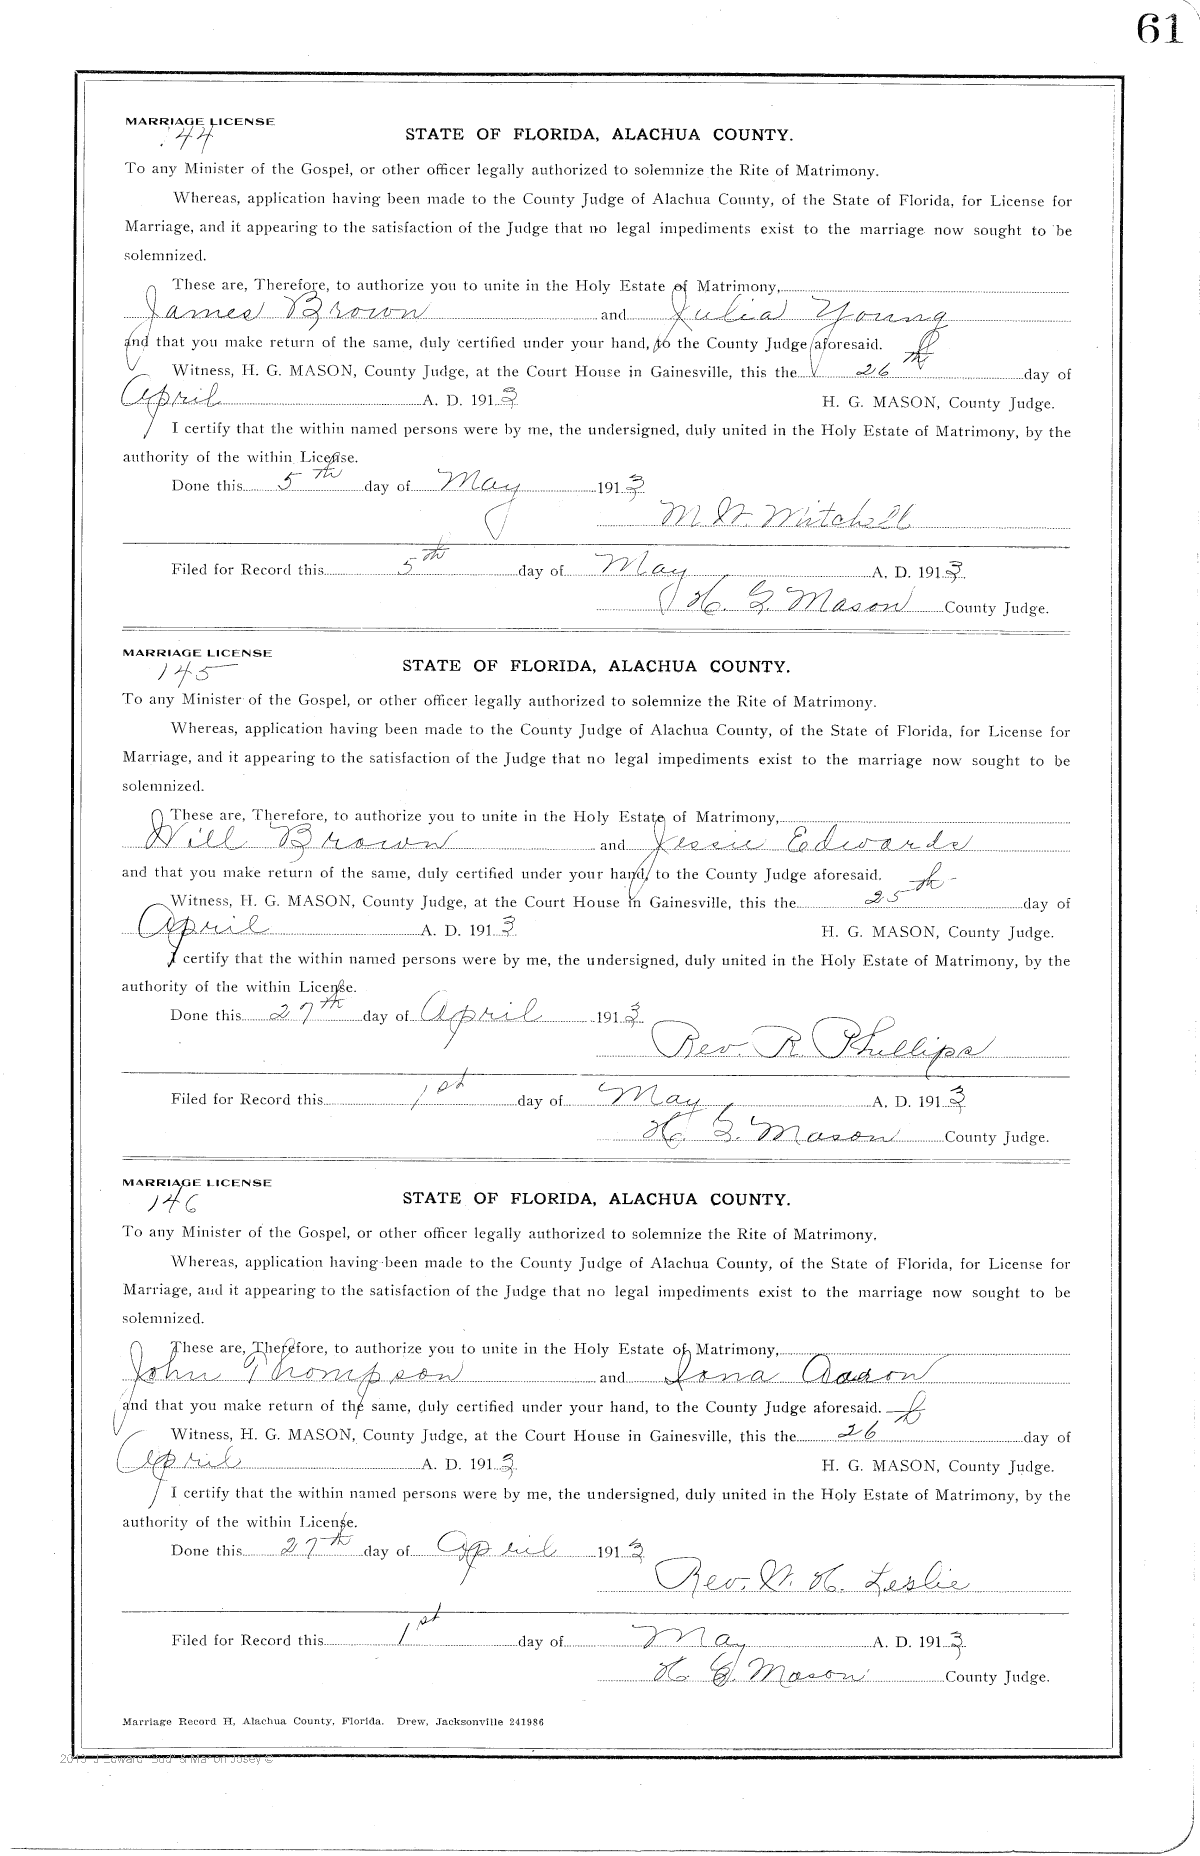 61
MARRIAGE LICENSE
144
STATE OF FLORIDA, ALACHUA COUNTY.
To any Minister of the Gospel, or other officer legally authorized to solemnize the Rite of Matrimony.
Whereas, application having been made to the County Judge of Alachua County, of the State of Florida, for License for
Marriage, and it appearing to the satisfaction of the Judge that no legal impediments exist to the marriage now sought to be
solemnized.
These are, Therefore, to authorize you to unite in the Holy Estate of Matrimony,
James Brown and Julia Young
and that you make return of the same, duly certified under your hand, to the County Judge aforesaid.
Witness, H. G. MASON, County Judge, at the Court House in Gainesville, this the 26th day of
April A. D. 1913 H. G. MASON, County Judge.
I certify that the within named persons were by me, the undersigned, duly united in the Holy Estate of Matrimony, by the
authority of the within License.
Done this 5th day of May 1913
M. W. Mitchell
Filed for Record this 5th day of May A. D. 1913
H. G. Mason County Judge.
MARRIAGE LICENSE
145
STATE OF FLORIDA, ALACHUA COUNTY.
To any Minister of the Gospel, or other officer legally authorized to solemnize the Rite of Matrimony.
Whereas, application having been made to the County Judge of Alachua County, of the State of Florida, for License for
Marriage, and it appearing to the satisfaction of the Judge that no legal impediments exist to the marriage now sought to be
solemnized.
These are, Therefore, to authorize you to unite in the Holy Estate of Matrimony,
Will Brown and Jessie Edwards
and that you make return of the same, duly certified under your hand, to the County Judge aforesaid.
Witness, H. G. MASON, County Judge, at the Court House in Gainesville, this the 25th day of
April A. D. 1913 H. G. MASON, County Judge.
I certify that the within named persons were by me, the undersigned, duly united in the Holy Estate of Matrimony, by the
authority of the within License.
Done this 27th day of April 1913
Rev. R. Phillips
Filed for Record this 1st day of May A. D. 1913
H. G. Mason County Judge.
MARRIAGE LICENSE
146
STATE OF FLORIDA, ALACHUA COUNTY.
To any Minister of the Gospel, or other officer legally authorized to solemnize the Rite of Matrimony.
Whereas, application having been made to the County Judge of Alachua County, of the State of Florida, for License for
Marriage, and it appearing to the satisfaction of the Judge that no legal impediments exist to the marriage now sought to be
solemnized.
These are, Therefore, to authorize you to unite in the Holy Estate of Matrimony,
John Thompson and Iona Aaron
and that you make return of the same, duly certified under your hand, to the County Judge aforesaid.
Witness, H. G. MASON, County Judge, at the Court House in Gainesville, this the 26th day of
April A. D. 1913 H. G. MASON, County Judge.
I certify that the within named persons were by me, the undersigned, duly united in the Holy Estate of Matrimony, by the
authority of the within License.
Done this 27th day of April 1913
Rev. W. H. Leslie
Filed for Record this 1st day of May A. D. 1913
H. G. Mason County Judge.
Marriage Record H, Alachua County, Florida. Drew, Jacksonville 241986